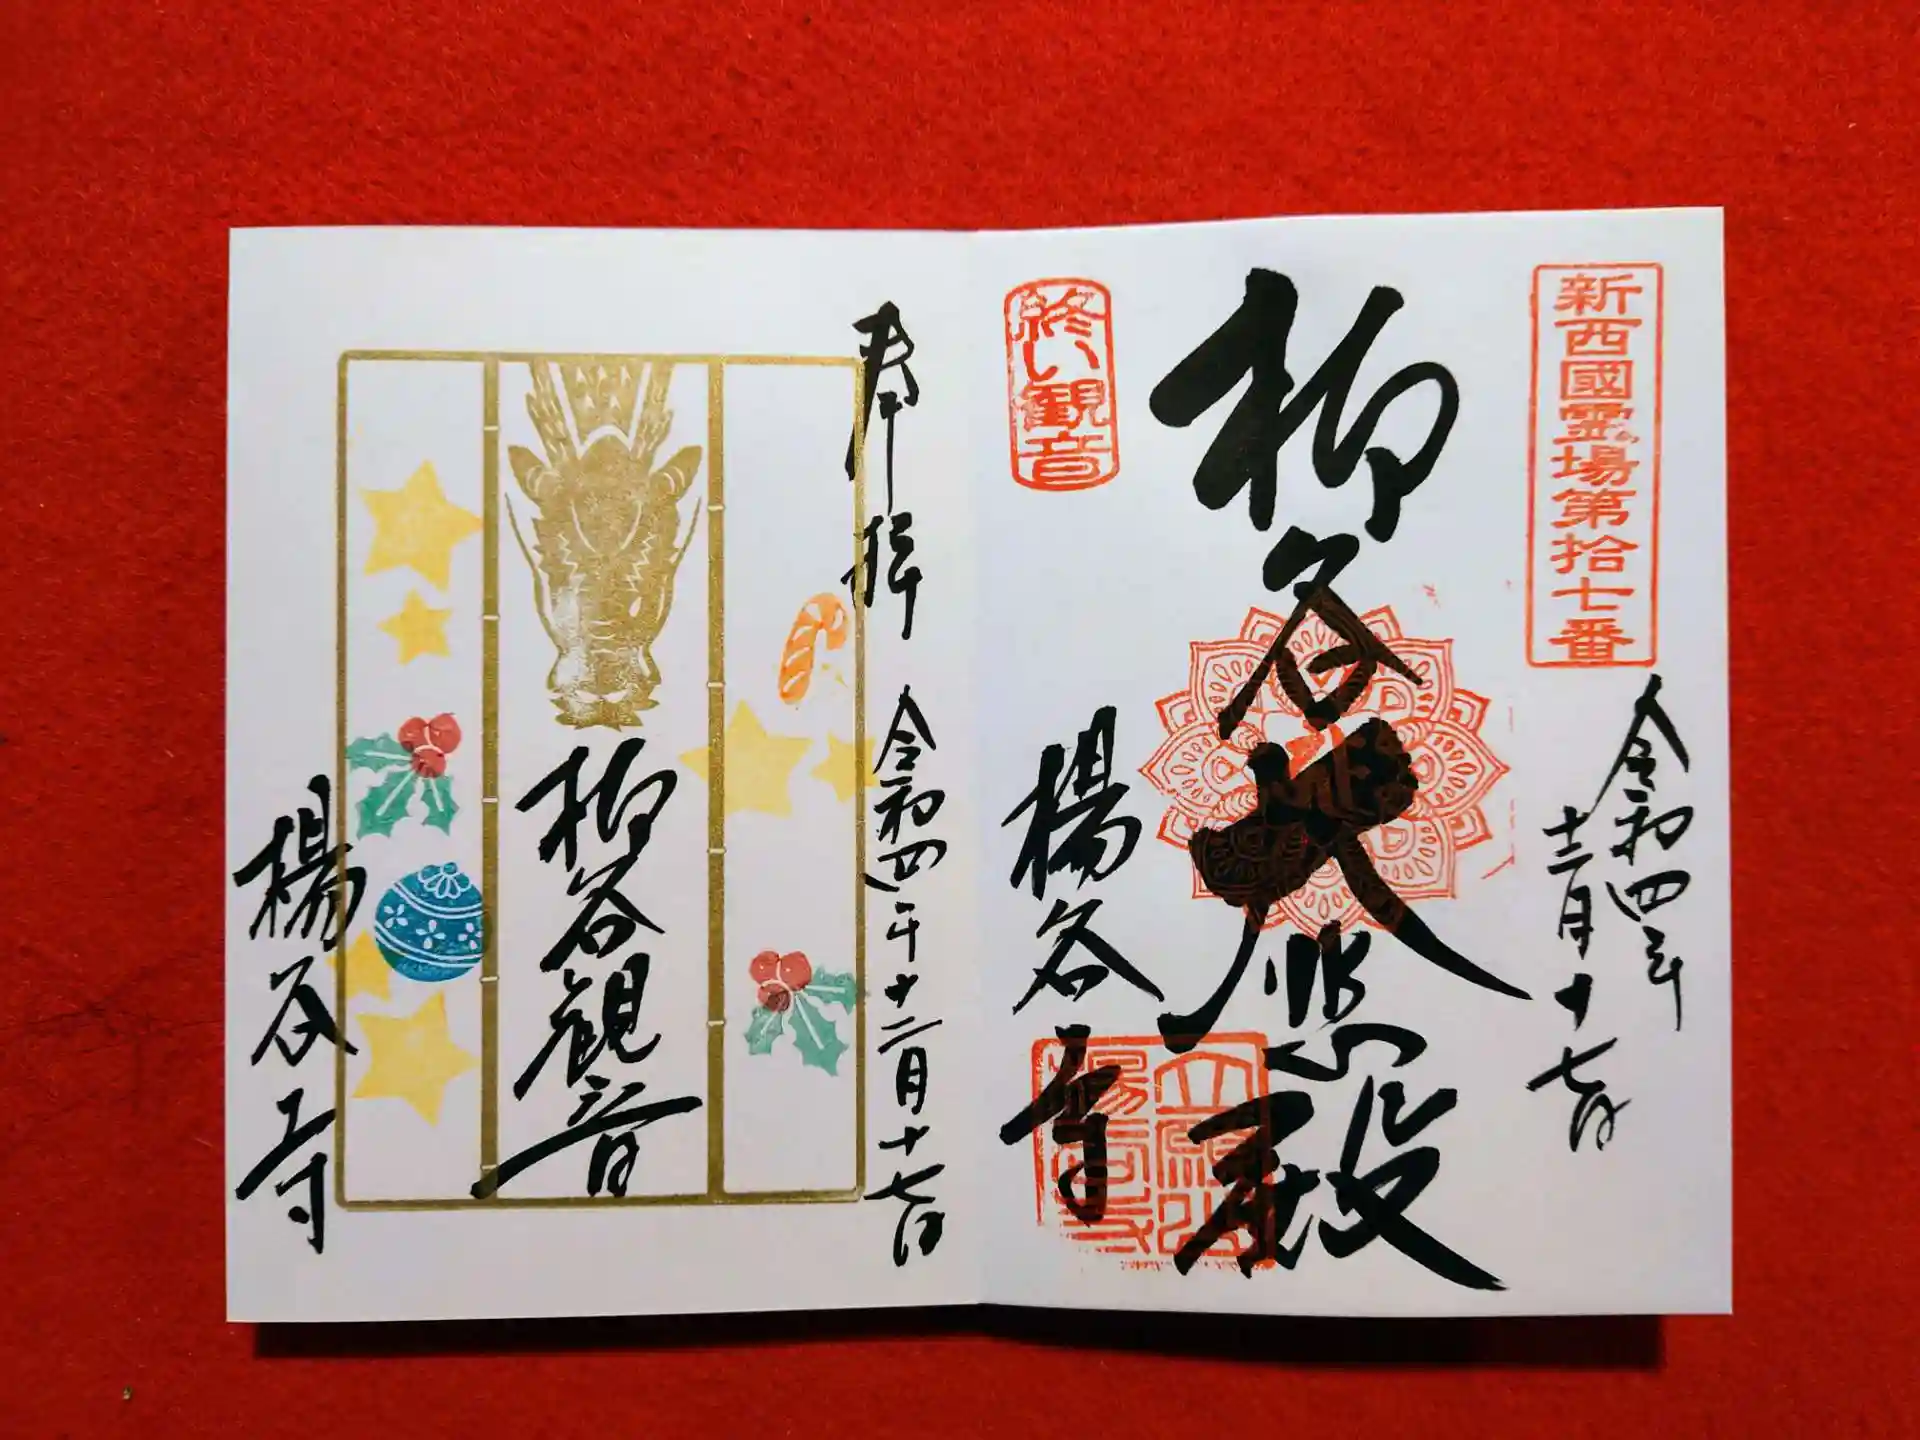 新西國霊場第拾七番
令和四年
十二月十七日
柳谷大悲殿
終い観音
楊谷寺
奉拝 令和四年十二月十七日
柳谷観音
楊谷寺